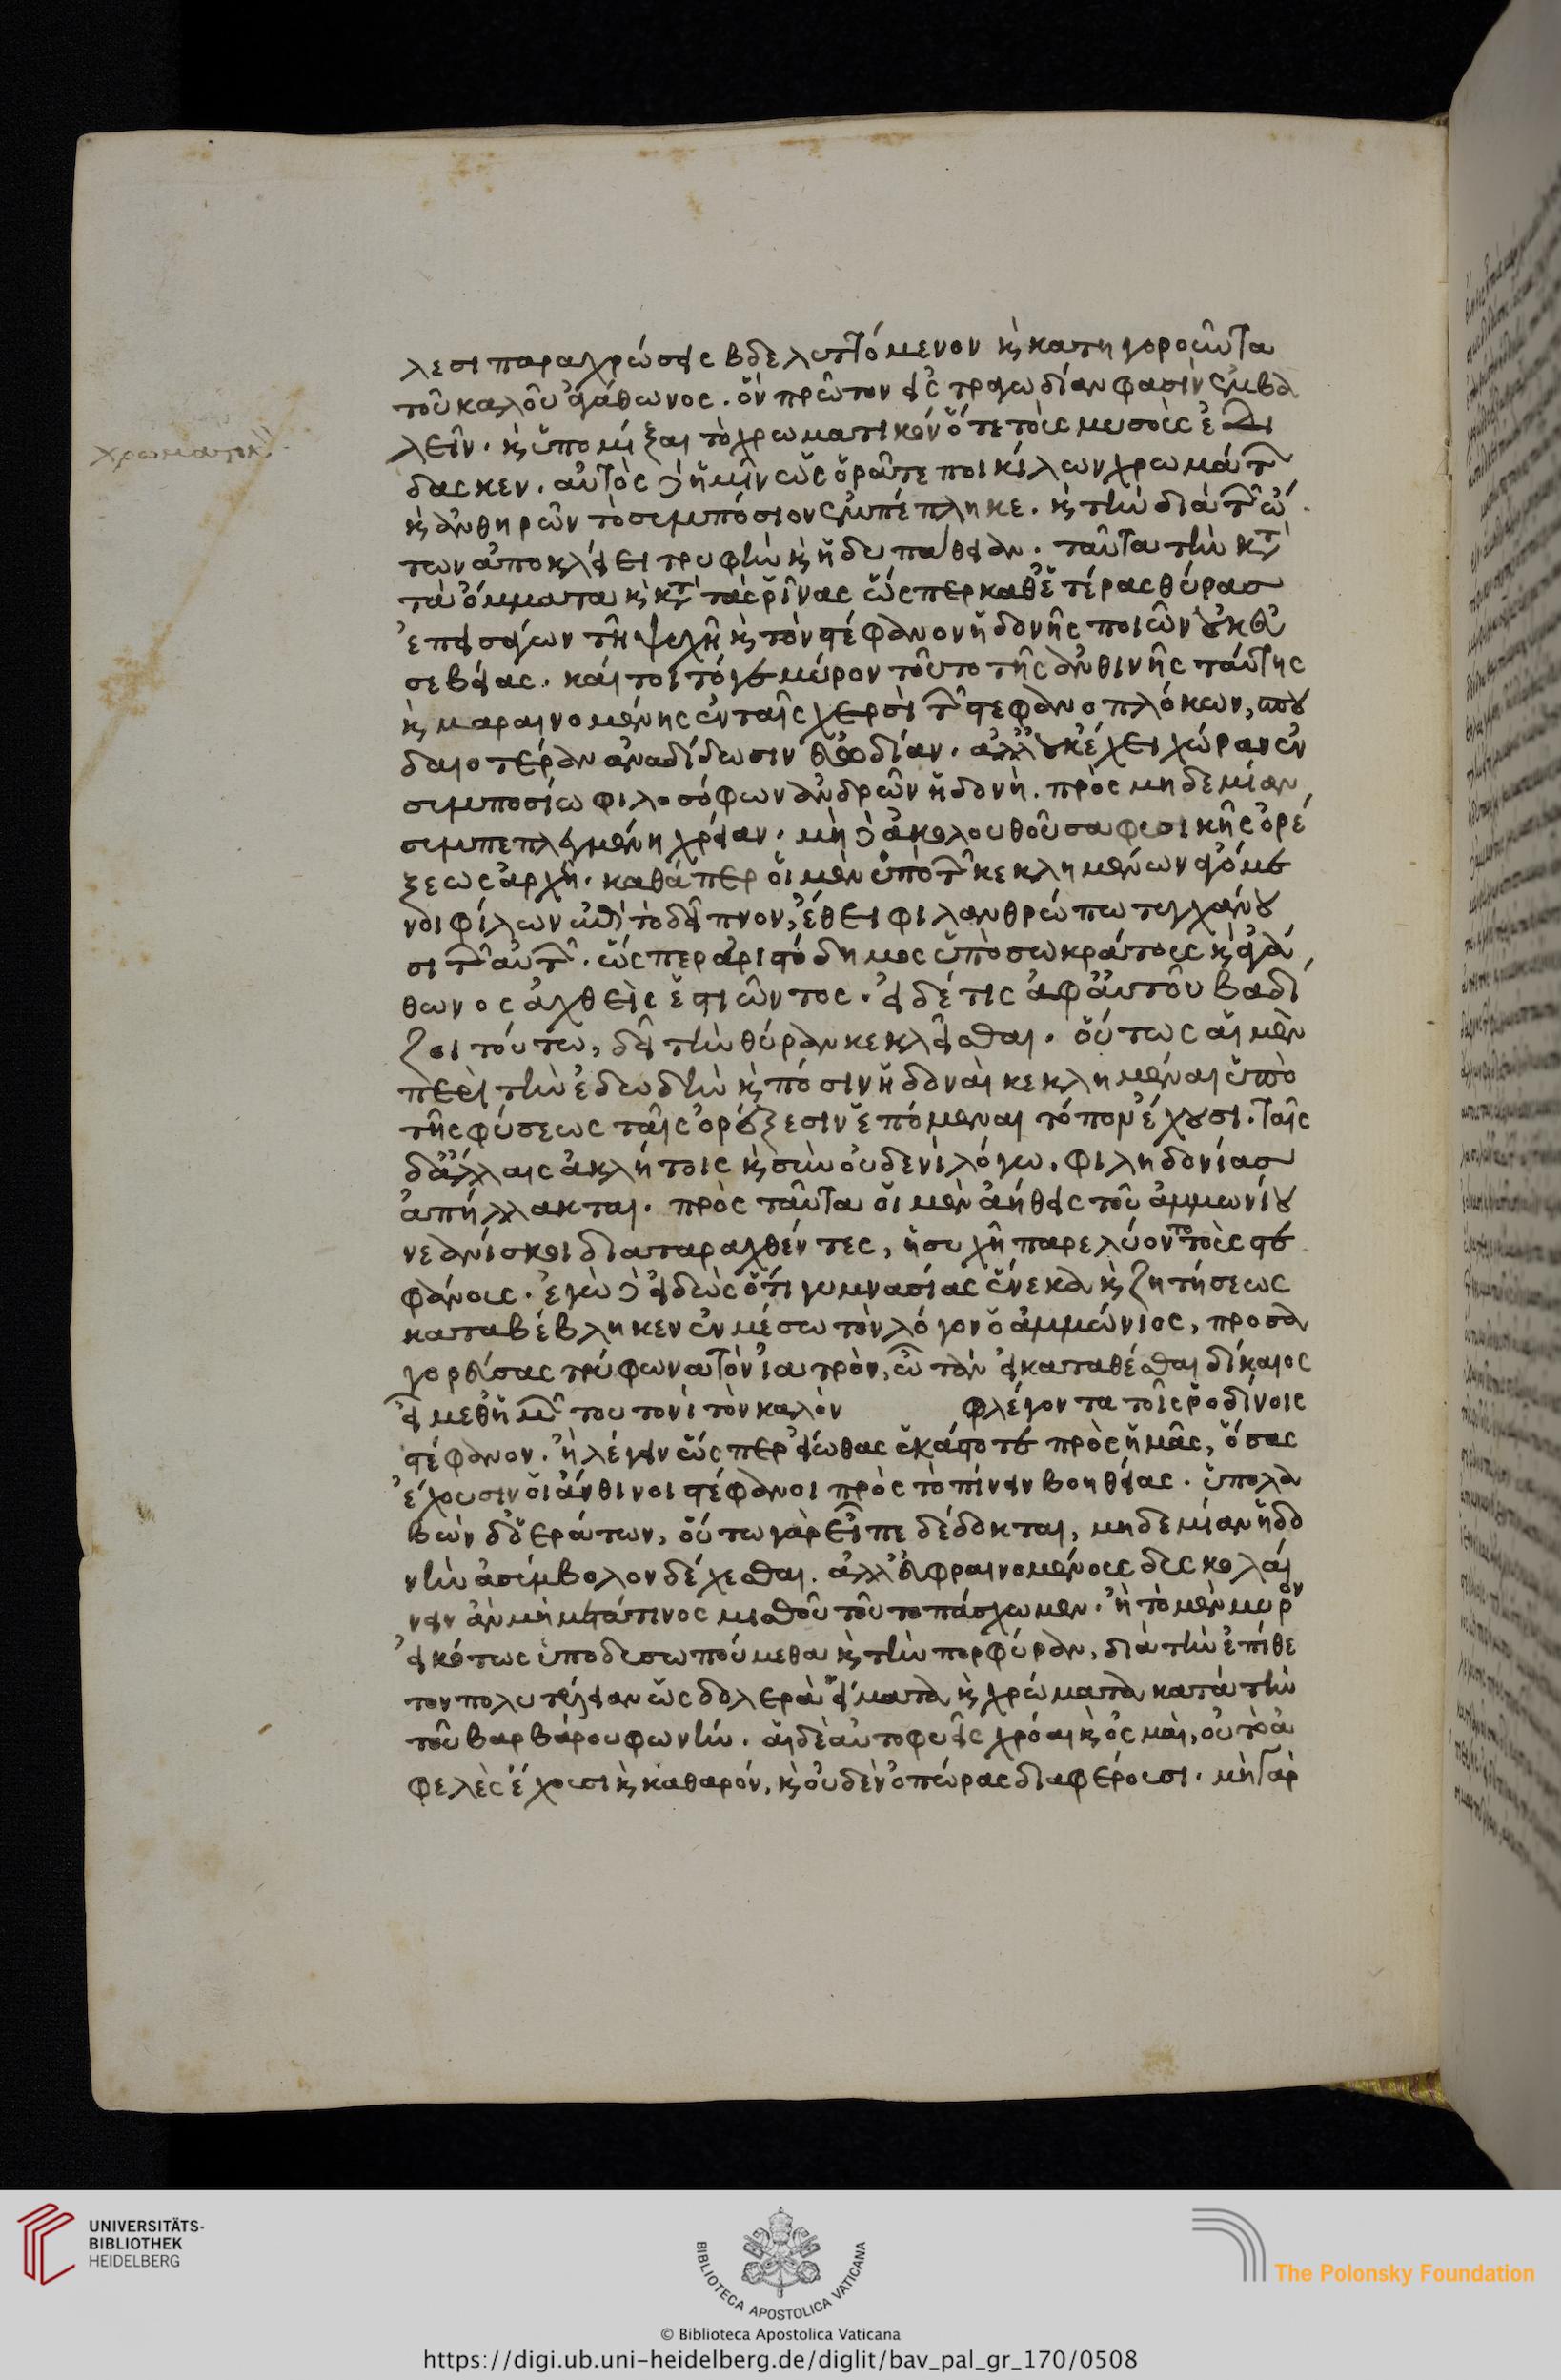 λεσι παραχρώσεις βδελυττόμενον καὶ κατηγοροῦντα
τοῦ καλοῦ ἀγάθωνος. ὃν πρῶτον εἰς τραγωδίαν φασὶν ἐμβα
λεῖν. καὶ ὑπομίξαι τὸ χρωματικόν ὅτε τοὺς μυσοὺς ἐδι
δασκεν. αὐτὸς δὲ ἡμῖν ὡς ὁρᾶτε ποικίλων χρωμάτων
καὶ ἀνθηρῶν τὸ συμπόσιον ἐμπέπληκε. καὶ τὴν διὰ τῶν ὤ
των ἀποκλείει τρυφὴν καὶ ἡδυπάθειαν. ταῦτα τὴν κατὰ
τὰ ὄμματα καὶ κατὰ τὰς ῥῖνας ὥσπερ καθ' ἑτέρας θύρας
ἐπεισάγων τῆ ψυχῆ καὶ τὸν στέφανον ἡδονῆς ποιῶν οὐκ εὐ
σεβείας. καίτοι τόγε μύρον τοῦτο τῆς ἀνθινῆς ταύτης
καὶ μαραινομένης ἐν ταῖς χερσὶ τῶν στεφανοπλόκων, σπου
δαιοτέραν ἀναδίδωσιν εὐωδίαν. ἀλλ' οὐκ ἔχει χώραν ἐν
συμποσίω φιλοσόφων ἀνδρῶν ἡδονὴ. πρὸς μηδεμίαν
συμπεπλεγμένη χρείαν. μὴ δὲ ἀκολουθοῦσα φυσικῆς ὀρέ
ξεως ἀρχῆ. καθάπερ οἱ μὲν ὑπὸ τῶν κεκλημένων ἀγόμε
νοι φίλων ἐπὶ τὸ δεῖπνον, ἔθει φιλανθρώπω τυγχάνου
σι τῶν αὐτῶν. ὥσπερ ἀριστόδημος ὑπὸ σωκράτους καὶ ἀγά
θωνος ἀχθεὶς ἑστιῶντος. εἰ δέ τις ἀφ' αὑτοῦ βαδί
ζοι τούτω, δεῖ τὴν θύραν κεκλεῖσθαι. οὕτως αἱ μὲν
περὶ τὴν ἐδωδὴν καὶ πόσιν ἡδοναὶ κεκλημέναι ὑπὸ
τῆς φύσεως ταῖς ὀρέξεσιν ἑπόμεναι τόπον ἔχουσι. ταῖς
δ' ἄλλαις ἀκλήτοις καὶ σὺν οὐδενὶ λόγω. φιληδονίας
ἀπήλλακται. πρὸς ταῦτα οἱ μὲν ἀήθεις τοῦ ἀμμωνίου
νεανίσκοι διαταραχθέντες, ἡσυχῆ παρελύοντο τοὺς στε
φάνους. ἐγὼ δὲ εἰδὼς ὅτι γυμνασίας ἕνεκα καὶ ζητήσεως
καταβέβληκεν ἐν μέσω τὸν λόγον ὁ ἀμμώνιος, προσα
γορεύσας τρύφωνα τὸν ἰατρὸν, ὦ τὰν εἰ καταθέσθαι δίκαιος
εἶ μεθ' ἡμῶν τουτονὶ τὸν καλὸν φλέγοντα τοῖς ῥοδίνοις
στέφανον. ἢ λέγειν ὥσπερ εἴωθας ἑκάστοτε πρὸς ἡμᾶς, ὅσας
ἔχουσιν οἱ ἄνθινοι στέφανοι πρὸς τὸ πίνειν βοηθείας. ὑπολα
βὼν δ' ὁ ἐράτων, οὕτω γὰρ εἶπε δέδοκται, μηδεμίαν ἡδο
νὴν ἀσύμβολον δέχεσθαι. ἀλλ' εὐφραινομένους δυσκολαί
νειν ἂν μὴ μετά τινος μισθοῦ τοῦτο πάσχωμεν. ἢ τὸ μὲν μύρον
εἰκότως ὑποδυσωπούμεθα καὶ τὴν πορφύραν, διὰ τὴν ἐπίθε
τον πολυτέλειαν ὡς δολερὰ εἵματα καὶ χρώματα κατὰ τὴν
τοῦ βαρβάρου φωνήν. αἱ δὲ αὐτοφυεῖς χρόαι καὶ ὀσμαὶ, οὐ τὸ ἀ
φελὲς ἔχουσι καὶ καθαρόν, καὶ οὐδὲν ὀπώρας διαφέρουσι. μὴ γὰρ
UNIVERSITÄTS-
BIBLIOTHEK
HEIDELBERG
BIBLIOTECA APOSTOLICA VATICANA
The Polonsky Foundation
© Biblioteca Apostolica Vaticana
https://digi.ub.uni-heidelberg.de/diglit/bav_pal_gr_170/0508